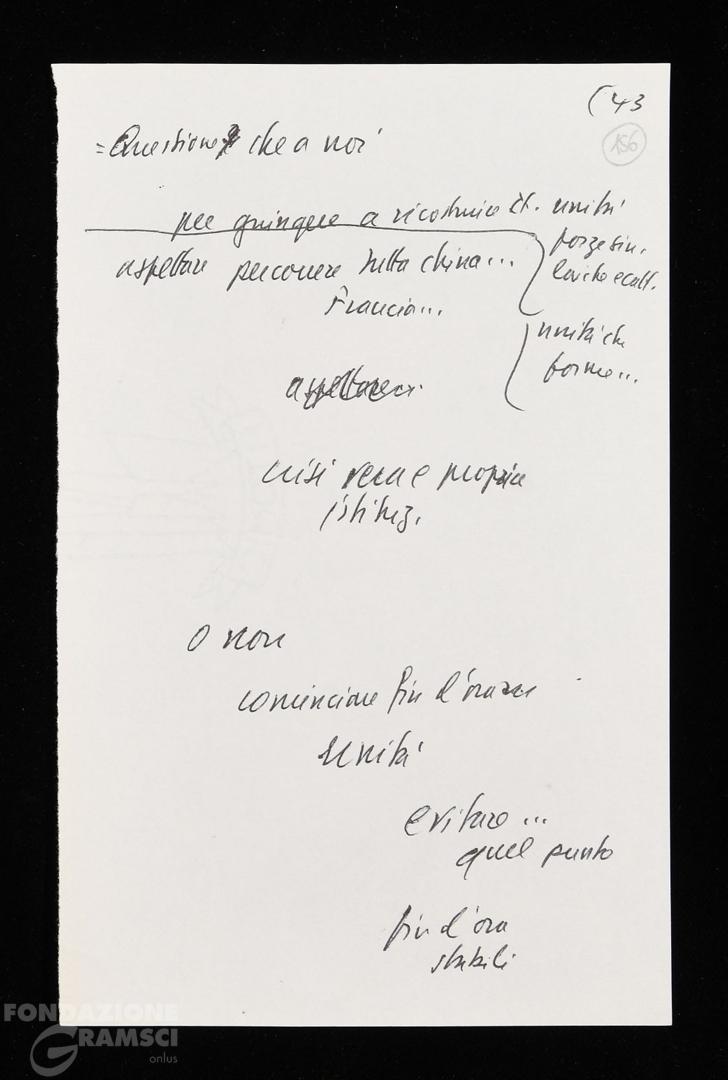 (43
156
= Questione che a noi
per giungere a ricostruire unità
forze sin.
laiche e catt.
aspettare percorrere tutta china...
Francia...
unità che
forme...
aspettare
crisi vera e propria
istituz.
O non
cominciare fin d'ora
Unità
evitare...
quel punto
fin d'ora
stabili
FONDAZIONE
GRAMSCI
onlus